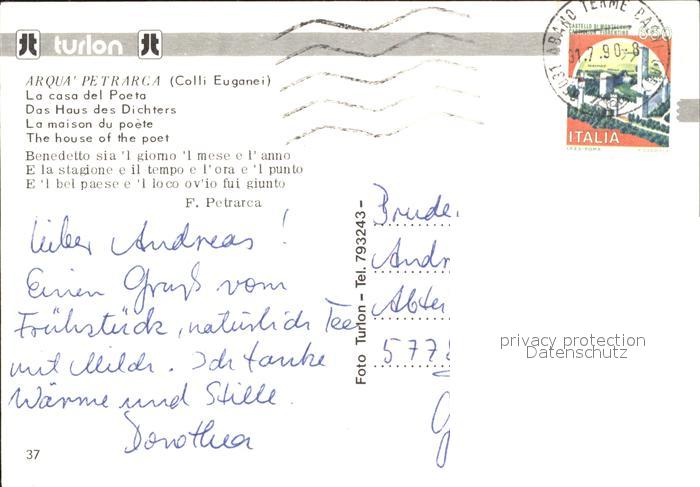 turlon
ARQUA' PETRARCA (Colli Euganei)
La casa del Poeta
Das Haus des Dichters
La maison du poète
The house of the poet
Benedetto sia 'l giorno 'l mese e l' anno
E la stagione e il tempo e l'ora e 'l punto
E 'l bel paese e 'l loco ov'io fui giunto
F. Petrarca
lieber Andreas!
Einen Gruß vom
Frühstück, natürlich Tee
mit Milch. Ich tanke
Wärme und Stille.
Dorothea
37
Foto Turlon - Tel. 793243 -
Bruder
Andr
Abtei
577
ABANO TERME
31.7.90-8
ITALIA
privacy protection
Datenschutz